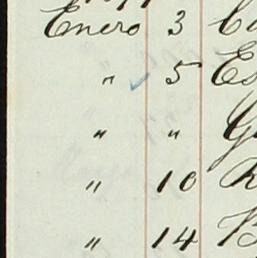 Enero 3
" 5 Es
" "
" 10
" 14 B